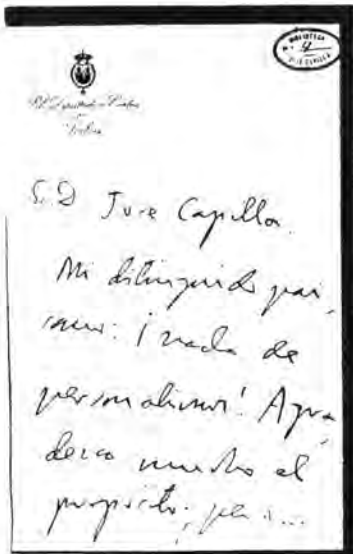 BIBLIOTECA
El Diputado a Cortes
por
S. D. Jose Capilla.
Mi distinguido pai-
sano: ¡nada de
personalismos! Agra-
dezco mucho el
propósito; pero...